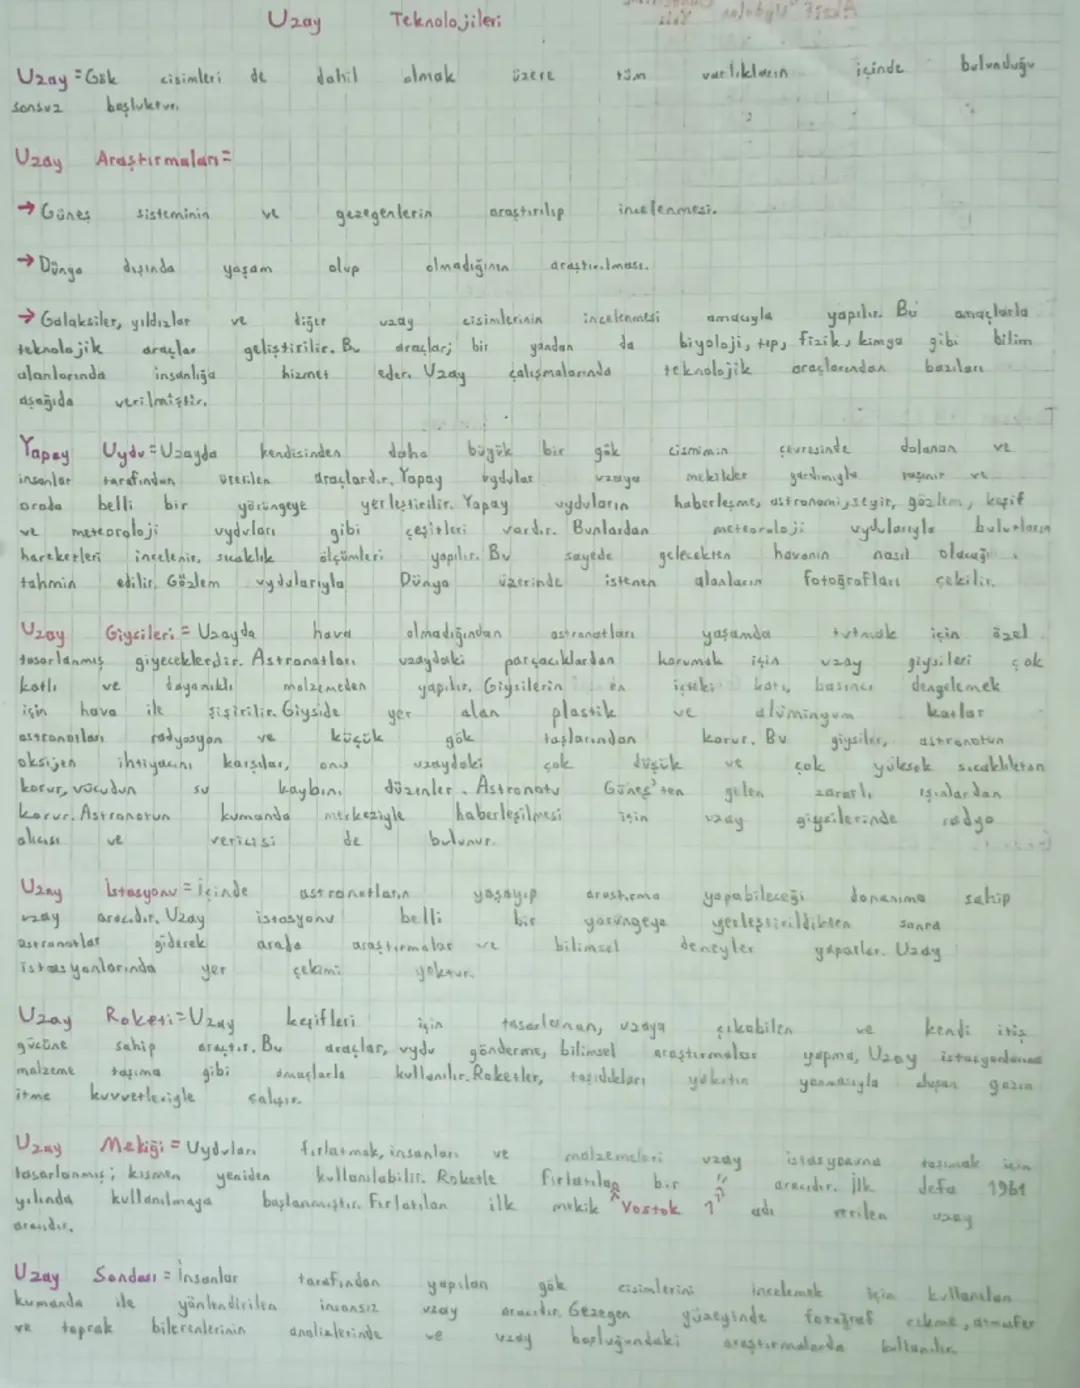 Uzay Teknolojileri
Uzay = Gök cisimleri de dahil olmak üzere tüm varlıkların içinde bulunduğu
sonsuz boşluktur.
Uzay Araştırmaları =
→ Güneş sisteminin ve gezegenlerin araştırılıp incelenmesi.
→ Dünya dışında yaşam olup olmadığının araştırılması.
→ Galaksiler, yıldızlar ve diğer uzay cisimlerinin incelenmesi amacıyla yapılır. Bu amaçlarla
teknolojik araçlar geliştirilir. Bu araçlar; bir yandan da biyoloji, tıp, fizik, kimya gibi bilim
alanlarında insanlığa hizmet eder. Uzay çalışmalarında teknolojik araçlarından bazıları
aşağıda verilmiştir.
Yapay Uydu = Uzayda kendisinden daha büyük bir gök cismimin çevresinde dolanan ve
insanlar tarafından üretilen araçlardır. Yapay uydular uzaya mekikler yardımıyla taşınır ve
orada belli bir yörüngeye yerleştirilir. Yapay uyduların haberleşme, astronomi, seyir, gözlem, keşif
ve meteoroloji uyduları gibi çeşitleri vardır. Bunlardan meteoroloji uydularıyla bulutların
hareketleri incelenir, sıcaklık ölçümleri yapılır. Bu sayede gelecekten havanın nasıl olacağı
tahmin edilir. Gözlem uydularıyla Dünya üzerinde istenen alanların fotoğrafları çekilir.
Uzay Giysileri = Uzayda hava olmadığından astronotları yaşamda tutmak için özel
tasarlanmış giyeceklerdir. Astronotları uzaydaki parçacıklardan korumak için uzay giysileri çok
katlı ve dayanıklı malzemeden yapılır. Giysilerin en içteki katı, basıncı dengelemek
için hava ile şişirilir. Giyside yer alan plastik ve alüminyum katlar
astronotları radyasyon ve küçük gök taşlarından korur. Bu giysiler, astronotun
oksijen ihtiyacını karşılar, onu uzaydaki çok düşük ve çok yüksek sıcaklıktan
korur, vücudun su kaybını düzenler. Astronotu Güneş'ten gelen zararlı ışınlardan
korur. Astronotun kumanda merkeziyle haberleşilmesi için uzay giysilerinde radyo
alıcısı ve vericisi de bulunur.
Uzay İstasyonu = İçinde astronotların yaşayıp araştırma yapabileceği donanıma sahip
uzay aracıdır. Uzay istasyonu belli bir yörüngeye yerleştirildikten sonra
astronotlar giderek arada araştırmalar ve bilimsel deneyler yaparlar. Uzay
istasyonlarında yer çekimi yoktur.
Uzay Roketi = Uzay keşifleri için tasarlanan, uzaya çıkabilen ve kendi itiş
gücüne sahip araçtır. Bu araçlar, uydu gönderme, bilimsel araştırmalar yapma, Uzay istasyonlarına
malzeme taşıma gibi amaçlarla kullanılır. Roketler, taşıdıkları yakıtın yanmasıyla oluşan gazın
itme kuvvetleriyle çalışır.
Uzay Mekiği = Uyduları fırlatmak, insanları ve malzemeleri uzay istasyonuna taşımak için
tasarlanmış; kısmen yeniden kullanılabilir. Roketle fırlatılan bir aracıdır. İlk defa 1961
yılında kullanılmaya başlanmıştır. Fırlatılan ilk mekik "Vostok 1" adı verilen uzay
aracıdır.
Uzay Sondası = İnsanlar tarafından yapılan gök cisimlerini incelemek için kullanılan
kumanda ile yönlendirilen insansız uzay aracıdır. Gezegen yüzeyinde fotoğraf çekme, atmosfer
ve toprak bileşenlerinin analizlerinde ve uzay boşluğundaki araştırmalarda kullanılır.